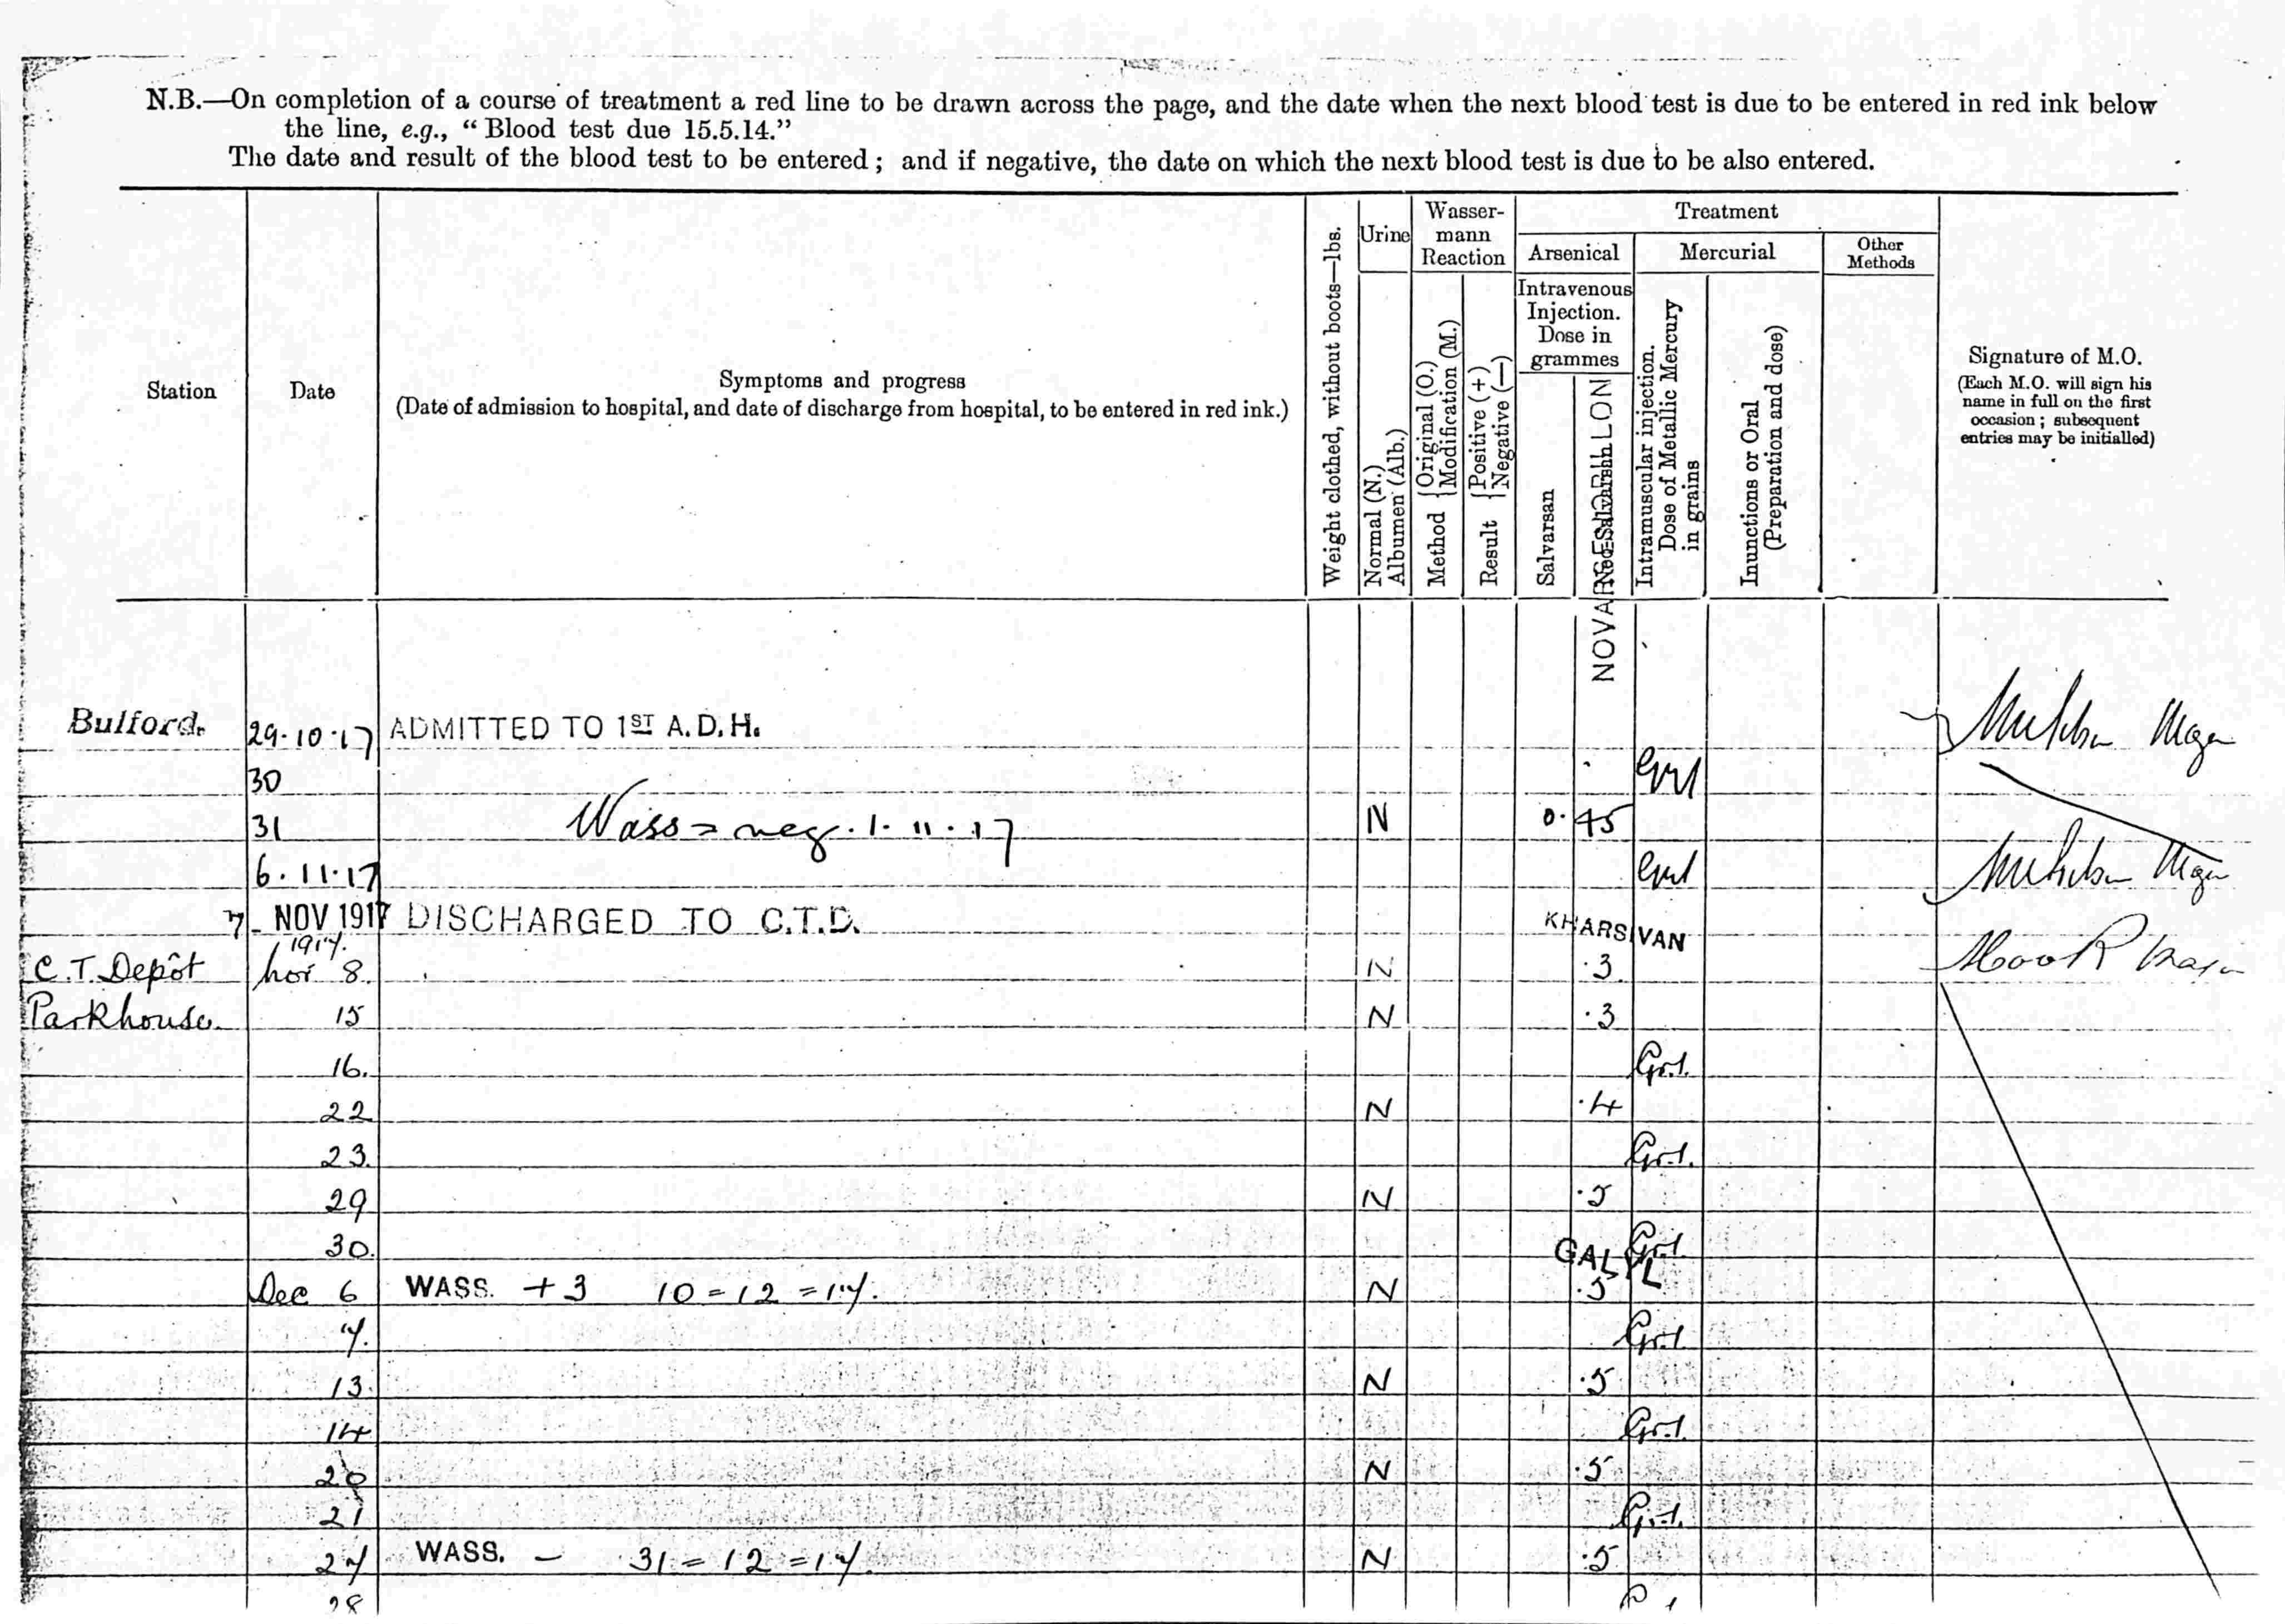 N.B.—On completion of a course of treatment a red line to be drawn across the page, and the date when the next blood test is due to be entered in red ink below
the line, e.g., “Blood test due 15.5.14.”
The date and result of the blood test to be entered; and if negative, the date on which the next blood test is due to be also entered.
Station
Date
Symptoms and progress
(Date of admission to hospital, and date of discharge from hospital, to be entered in red ink.)
Weight clothed, without boots—lbs.
Urine
Normal (N.)
Albumen (Alb.)
Wasser-
mann
Reaction
Method {Original (O.)
Modification (M.)
Result {Positive (+)
Negative (—)
Treatment
Arsenical
Intravenous
Injection.
Dose in
grammes
Salvarsan
Neo-Salvarsan
NOVARSENOBILLON
Mercurial
Intramuscular injection.
Dose of Metallic Mercury
in grains
Inunctions or Oral
(Preparation and dose)
Other
Methods
Signature of M.O.
(Each M.O. will sign his
name in full on the first
occasion; subsequent
entries may be initialled)
Bulford. 29·10·17 ADMITTED TO 1ST A.D.H.
30 Gr1
31 Wass = neg. 1·11·17 N 0·45
6·11·17 Gr1
7 - NOV 1917 DISCHARGED TO C.T.D. KHARSIVAN
1917.
C.T. Depôt Nov 8. N ·3
Parkhouse. 15 N ·3
16. Gr.1.
22 N ·4
23. Gr.1.
29 N ·5
30. Gr.1.
GALYL
Dec 6 WASS. + 3 10=12=17. N ·5
7. Gr.1.
13. N ·5
14 Gr.1.
20 N ·5
21 Gr.1.
27 WASS. — 31=12=17. N ·5
28